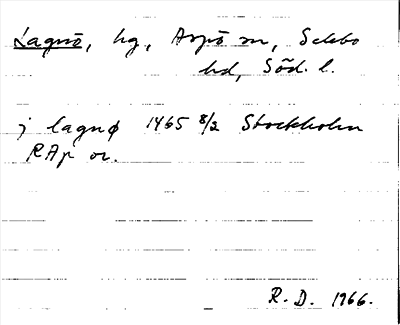 Lagnö, hg, Aspö sn, Selebo
hd, Söd. l.
j lagnø 1465 8/2 Stockholm
RAp or.
R. D. 1966.